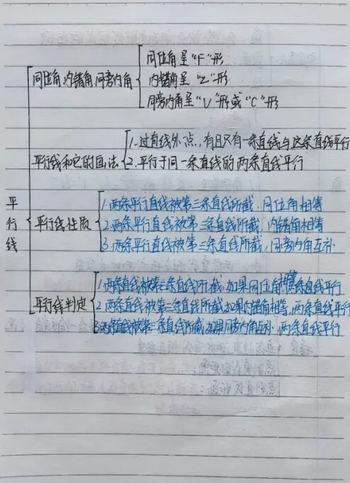 同位角呈"F"形
同位角,内错角,同旁内角 内错角呈"Z"形
同旁内角呈"U"形或"C"形
1.过直线外一点,有且只有一条直线与这条直线平行
平行线和它的画法 2.平行于同一条直线的两条直线平行
平行线
1.两条平行直线被第三条直线所截,同位角相等
平行线性质 2.两条平行直线被第三条直线所截,内错角相等
3.两条平行直线被第三条直线所截,同旁内角互补
1.两条直线被第三条直线所截,如果同位角相等,两条直线平行
平行线判定 2.两条直线被第三条直线所截,如果内错角相等,两条直线平行
3.两条直线被第三条直线所截,如果同旁内角互补,两条直线平行